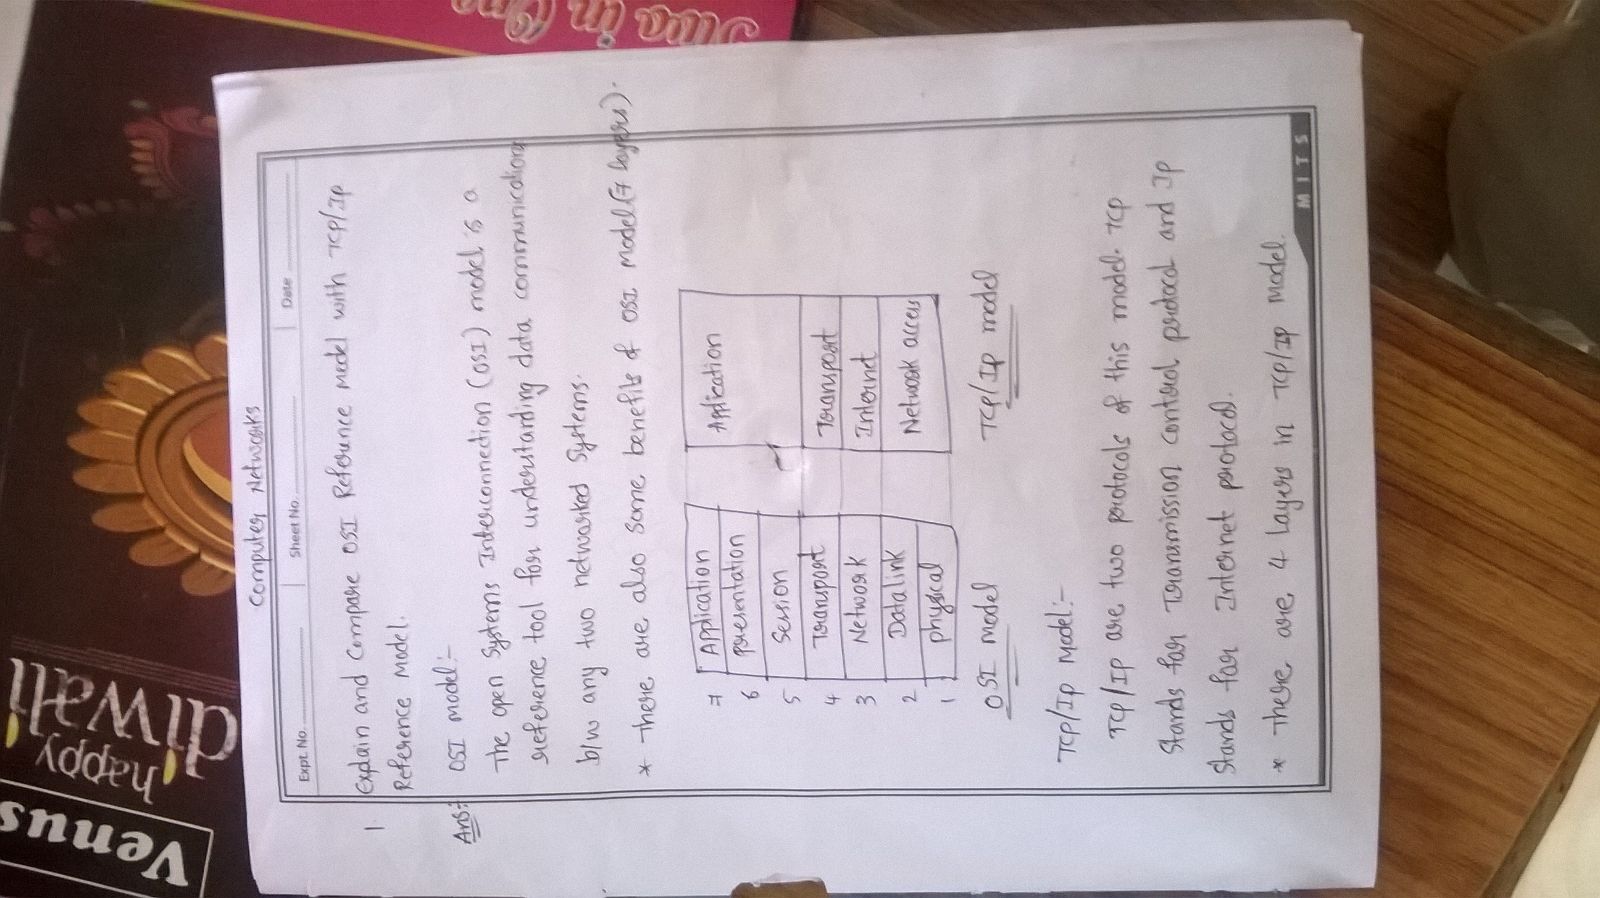 Venus
happy
diwali
Computer Networks
Expt. No.
Sheet No.
Date
1 Explain and Compare OSI Reference model with TCP/Ip
Reference Model.
Ans:- OSI model:-
The open Systems Interconnection (OSI) model is a
reference tool for understanding data communication
b/w any two networked Systems.
* There are also some benefits of OSI model (7 layers).
7 Application
6 presentation
5 Session
4 Transport
3 Network
2 Datalink
1 physical
OSI model
Application
Transport
Internet
Network access
TCP/Ip model
TCP/Ip Model:-
TCP/IP are two protocols of this model. TCP
Stands for Transmission control protocol and Ip
stands for Internet protocol.
* There are 4 Layers in TCP/Ip Model.
MITS
in